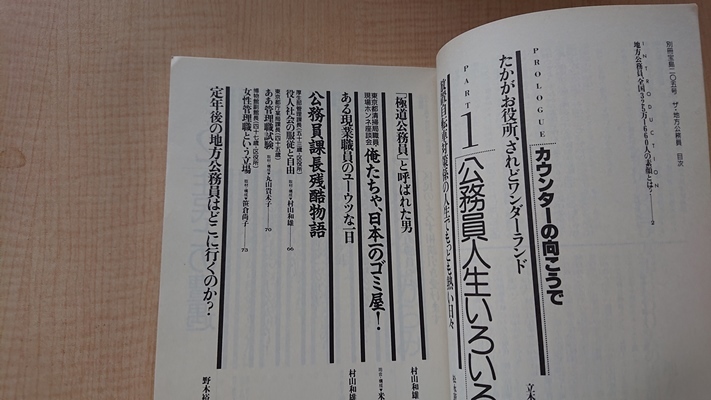 別冊宝島二〇五号 ザ・地方公務員 目次
INTRODUCTION
地方公務員、全国325万1660人の素顔とは?……2
PROLOGUE カウンターの向こうで
たかがお役所、されどワンダーランド
立木
PART1 公務員人生いろいろ
放置自転車対策係の人生でもっとも熱い日々
「極道公務員」と呼ばれた男
村山和雄
東京都清掃局職員・
現場ホンネ座談会
俺たちゃ、日本一のゴミ屋!
取材・構成▼米
ある現業職員のユーウツな一日
村山和雄
公務員課長残酷物語
厚生部管理課長(五十三歳・区役所)
役人社会の服従と自由 取材・構成▼村山和雄――66
東京都庁某局課長(四十五歳)
ああ管理職試験 取材・構成▼丸山貴未子――70
博物館副館長(四十七歳・区役所)
女性管理職という立場 取材・構成▼笹倉尚子――73
定年後の地方公務員はどこに行くのか?
野木裕